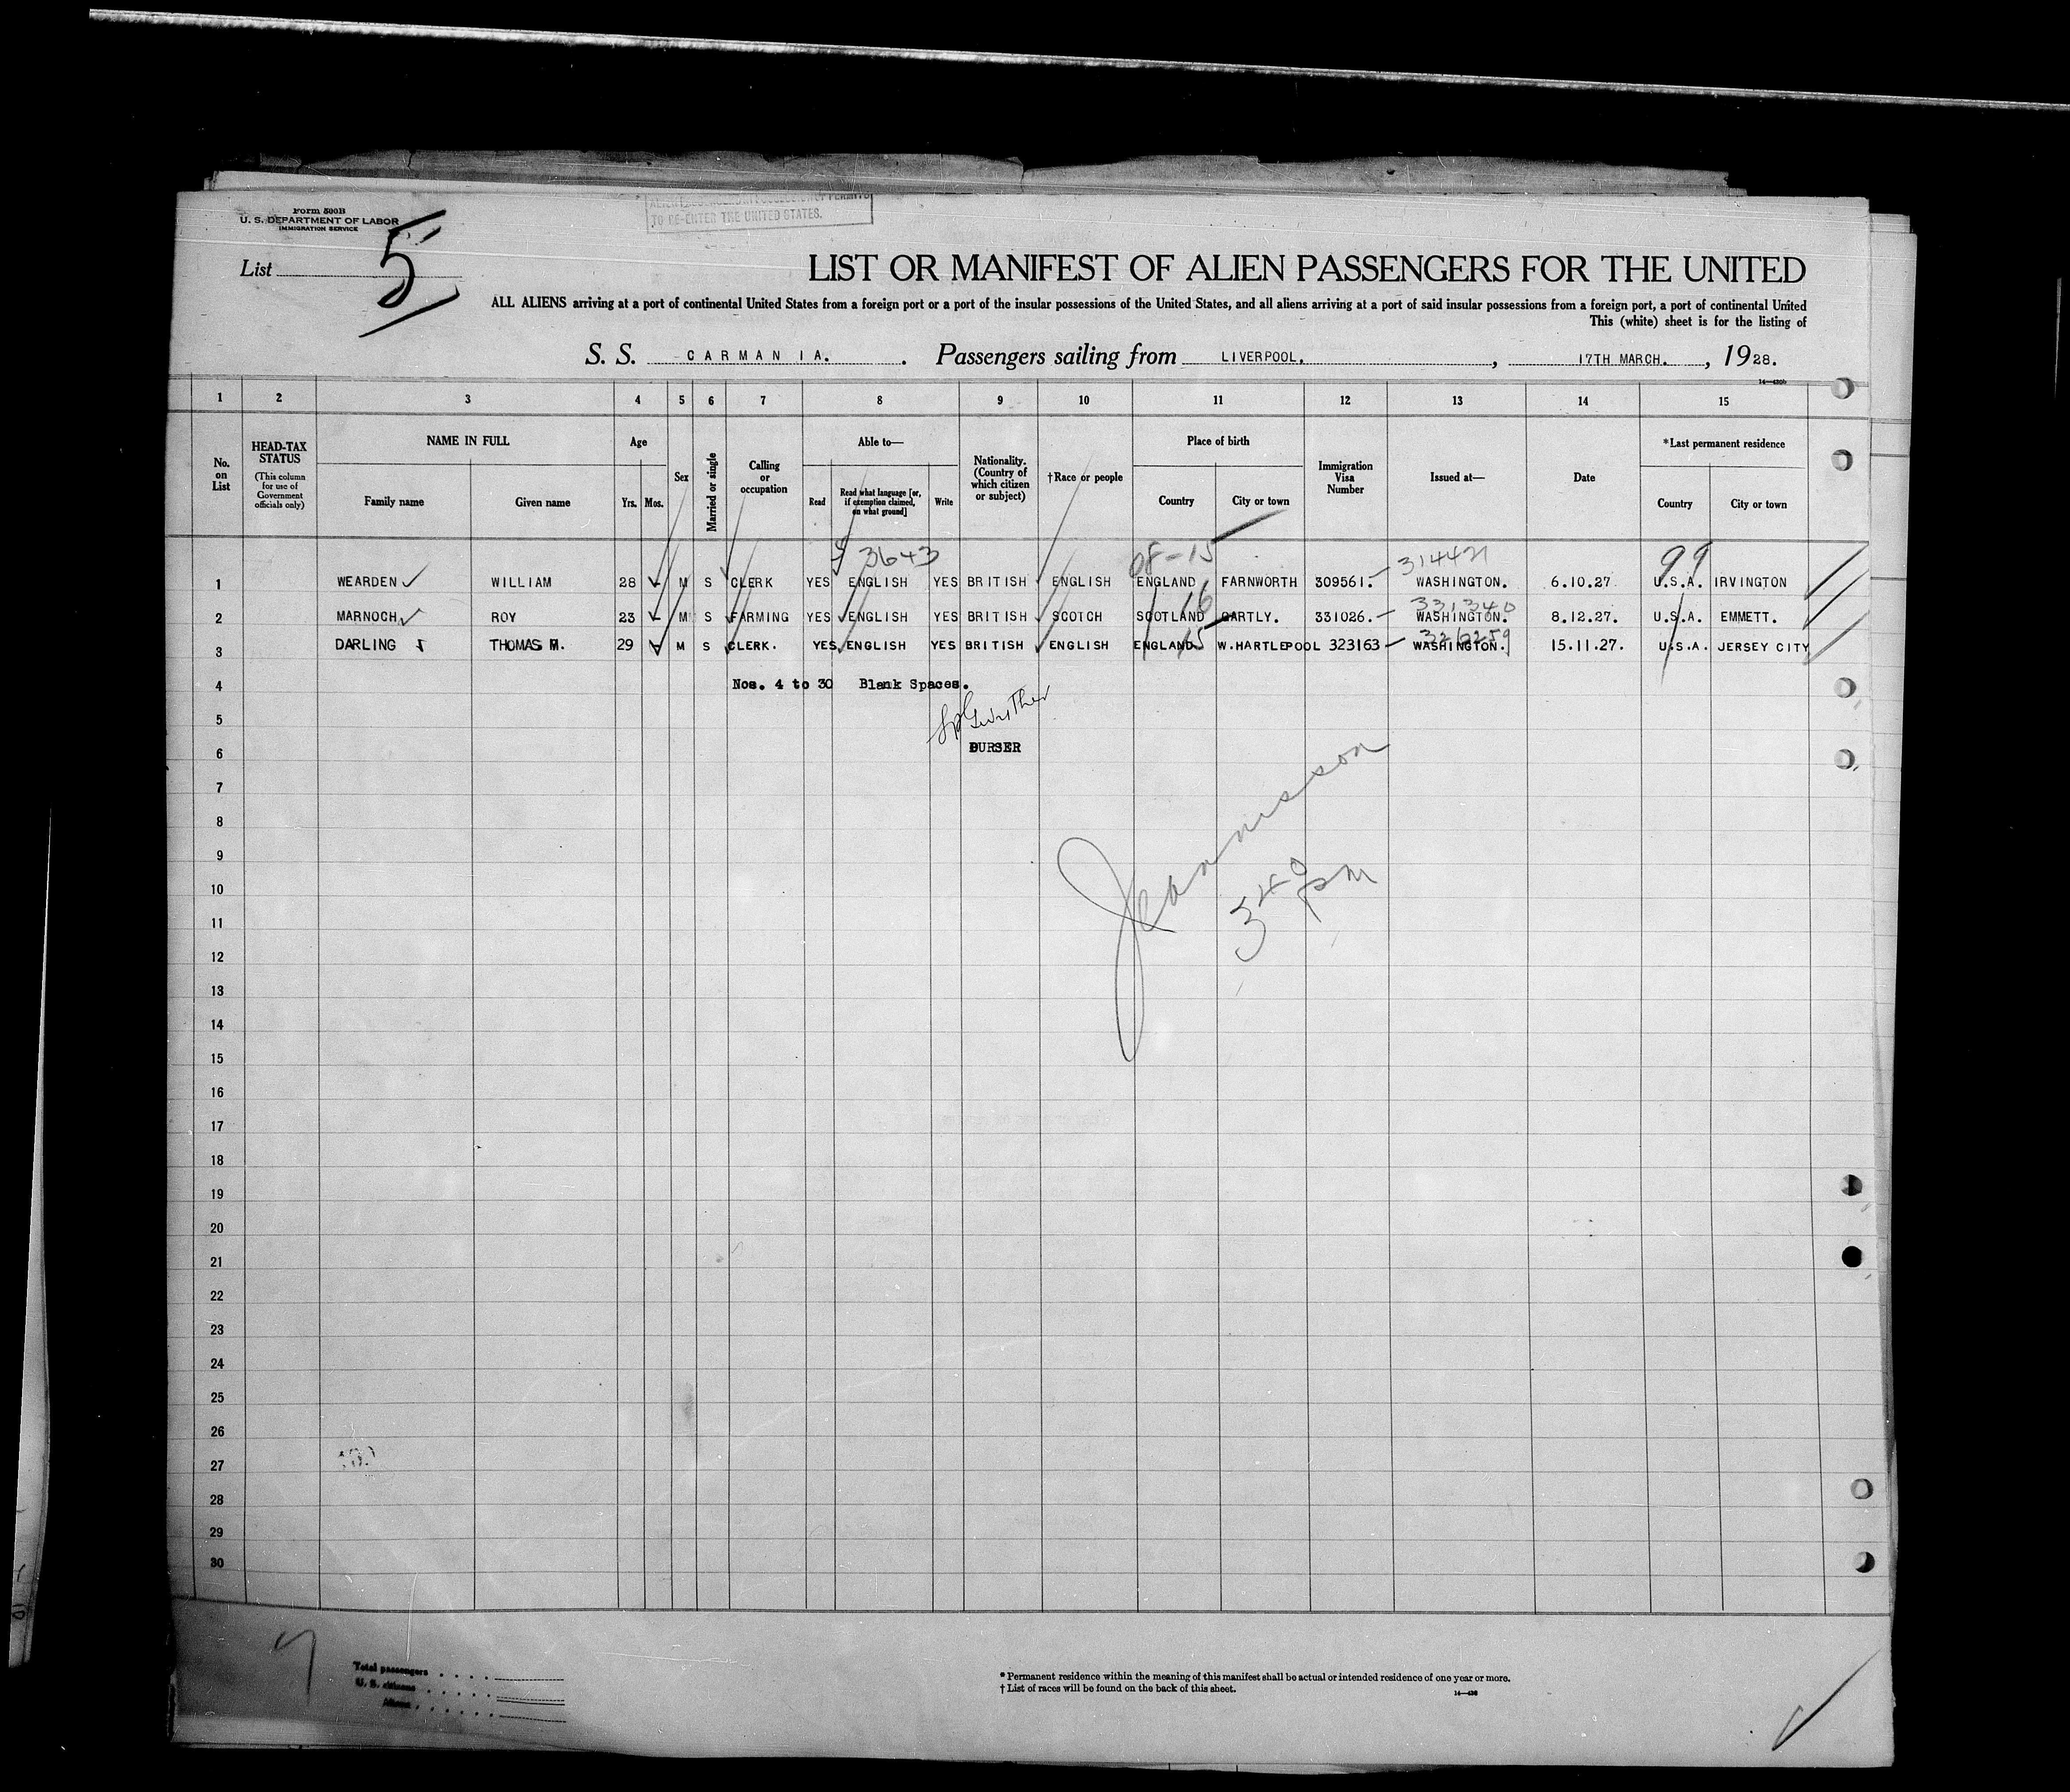 Form 500B
U. S. DEPARTMENT OF LABOR
IMMIGRATION SERVICE
TO RE-ENTER THE UNITED STATES.
List 5
LIST OR MANIFEST OF ALIEN PASSENGERS FOR THE UNITED
ALL ALIENS arriving at a port of continental United States from a foreign port or a port of the insular possessions of the United States, and all aliens arriving at a port of said insular possessions from a foreign port, a port of continental United
This (white) sheet is for the listing of
S. S. CARMANIA. Passengers sailing from LIVERPOOL, 17TH MARCH, 1928.
1 2 3 4 5 6 7 8 9 10 11 12 13 14 15
No. on List
HEAD-TAX STATUS (This column for use of Government officials only)
NAME IN FULL Family name Given name
Age Yrs. Mos.
Sex
Married or single
Calling or occupation
Able to— Read Read what language [or, if exemption claimed, on what ground] Write
Nationality. (Country of which citizen or subject)
†Race or people
Place of birth Country City or town
Immigration Visa Number
Issued at—
Date
*Last permanent residence Country City or town
3643 08-15 314421 99
1 WEARDEN WILLIAM 28 M S CLERK YES ENGLISH YES BRITISH ENGLISH ENGLAND FARNWORTH 309561. WASHINGTON. 6.10.27. U.S.A. IRVINGTON
16 331340
2 MARNOCH ROY 23 M S FARMING YES ENGLISH YES BRITISH SCOTCH SCOTLAND GARTLY. 331026. WASHINGTON. 8.12.27. U.S.A. EMMETT.
15
3 DARLING THOMAS M. 29 M S CLERK. YES ENGLISH YES BRITISH ENGLISH ENGLAND W.HARTLEPOOL 323163 WASHINGTON. 15.11.27. U.S.A. JERSEY CITY
4 Nos. 4 to 30 Blank Spaces.
5
6 PURSER
7
8
9
10
11
12
13
14
15
16
17
18
19
20
21
22
23
24
25
26
27
28
29
30
340 pm
Total passengers
U. S. citizens
Aliens
* Permanent residence within the meaning of this manifest shall be actual or intended residence of one year or more.
† List of races will be found on the back of this sheet.